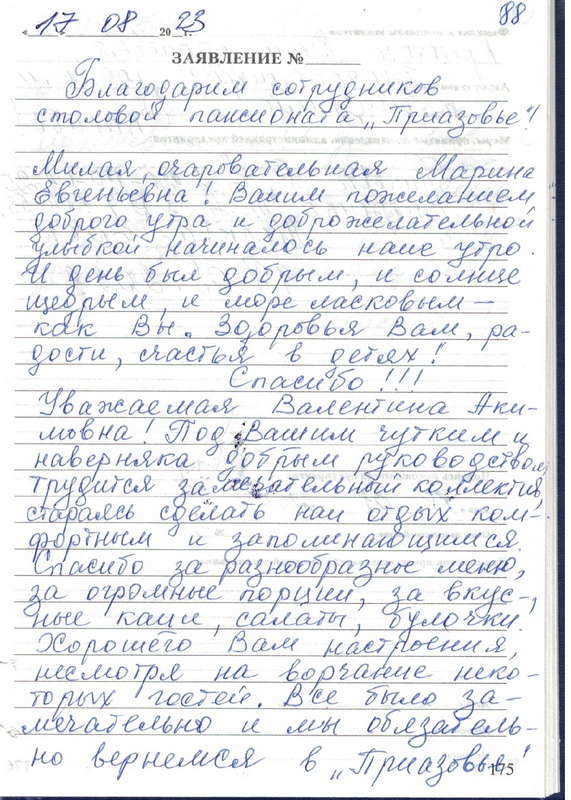 88
« 17 » 08 2023 г.
ЗАЯВЛЕНИЕ №
Благодарим сотрудников
столовой пансионата „Приазовье"!
Милая, очаровательная Марина
Евгеньевна! Вашим пожеланием
доброго утра и доброжелательной
улыбкой начиналось наше утро.
И день был добрым, и солнце
щедрым, и море ласковым –
как Вы. Здоровья Вам, ра-
дости, счастья в детях!
Спасибо!!!
Уважаемая Валентина Аки-
мовна! Под Вашим чутким и
наверняка добрым руководством
трудится замечательный коллектив,
стараясь сделать наш отдых ком-
фортным и запоминающимся.
Спасибо за разнообразное меню,
за огромные порции, за вкус-
ные каши, салаты, булочки.
Хорошего Вам настроения,
несмотря на ворчание неко-
торых гостей. Все было за-
мечательно и мы обязатель-
но вернемся в „Приазовье"!
175